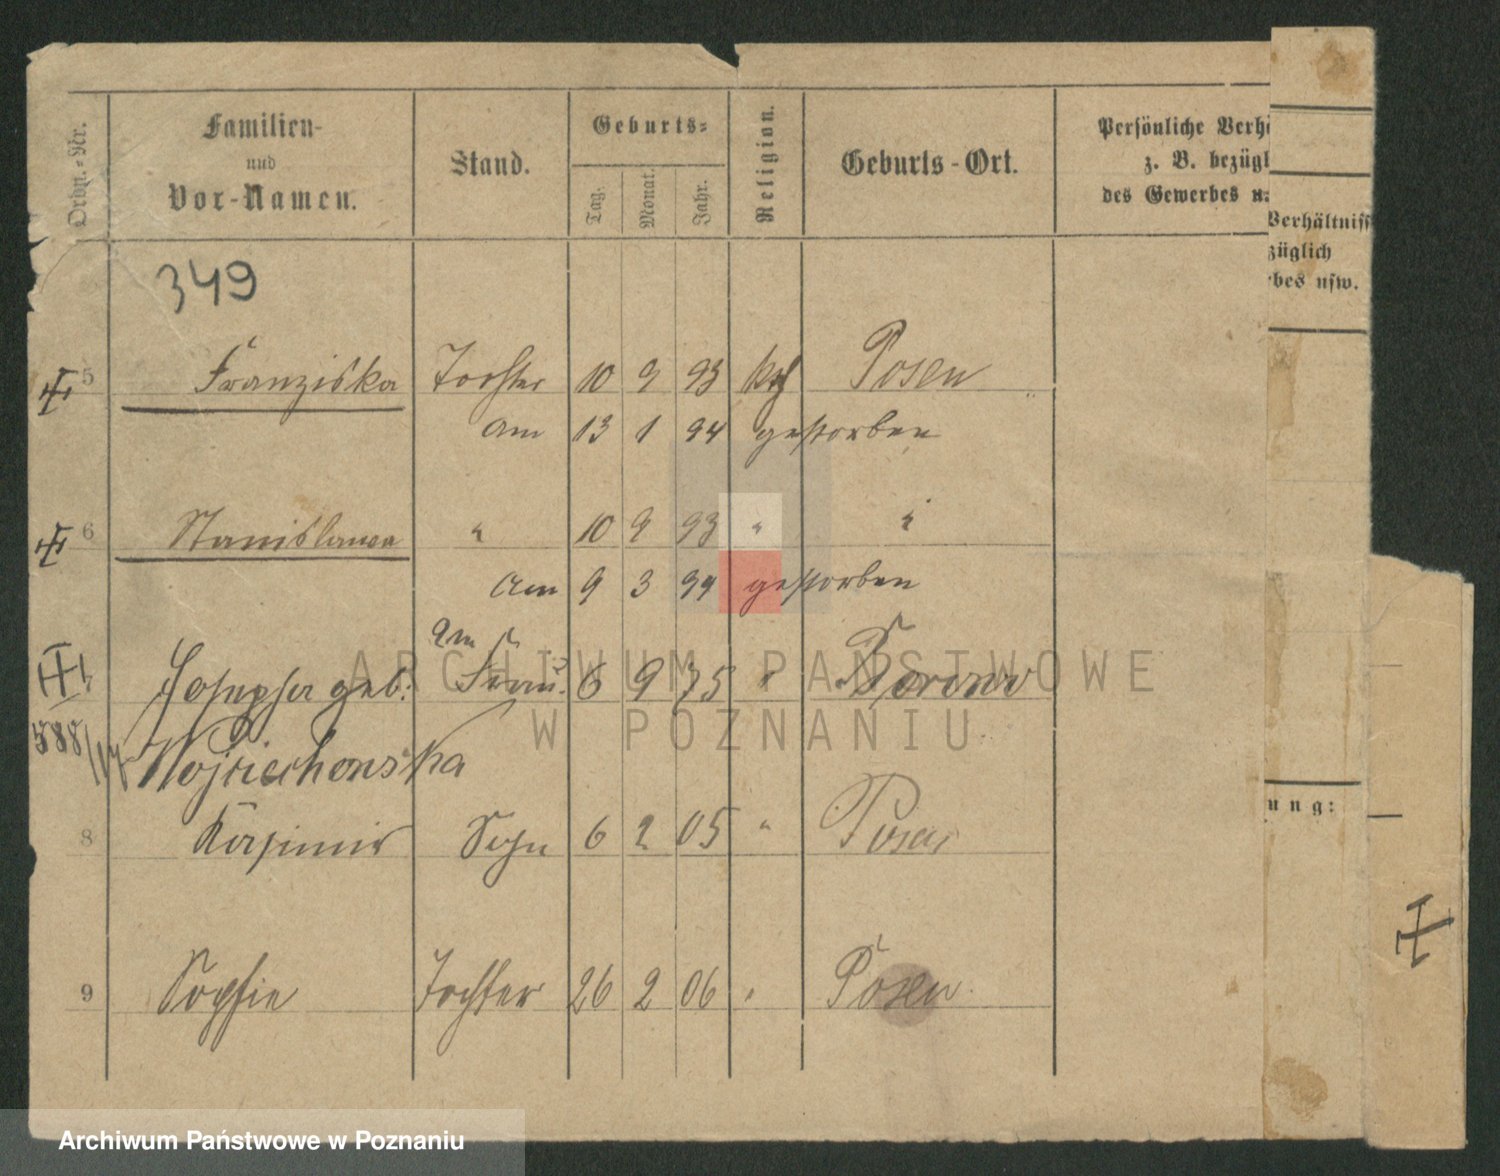 Ordn.-Nr.
Familien-
und
Vor-Namen.
Stand.
Geburts-
Tag.
Monat.
Jahr.
Religion.
Geburts-Ort.
Persönliche Verhä
z. B. bezügl
des Gewerbes u.
Verhältniss
züglich
rbes usw.
349
5 Franziska Tochter 10 9 93 kth Posen
am 13 1 94 gestorben
6 Stanislawa " 10 9 93 " "
am 9 3 94 gestorben
Josepha geb. Frau 6 9 75 "
588/17 Wojciechowska
8 Kasimir Sohn 6 2 05 " Posen
ung:
9 Sophie Tochter 26 2 06 " Posen
ARCHIWUM PAŃSTWOWE
W POZNANIU
Archiwum Państwowe w Poznaniu